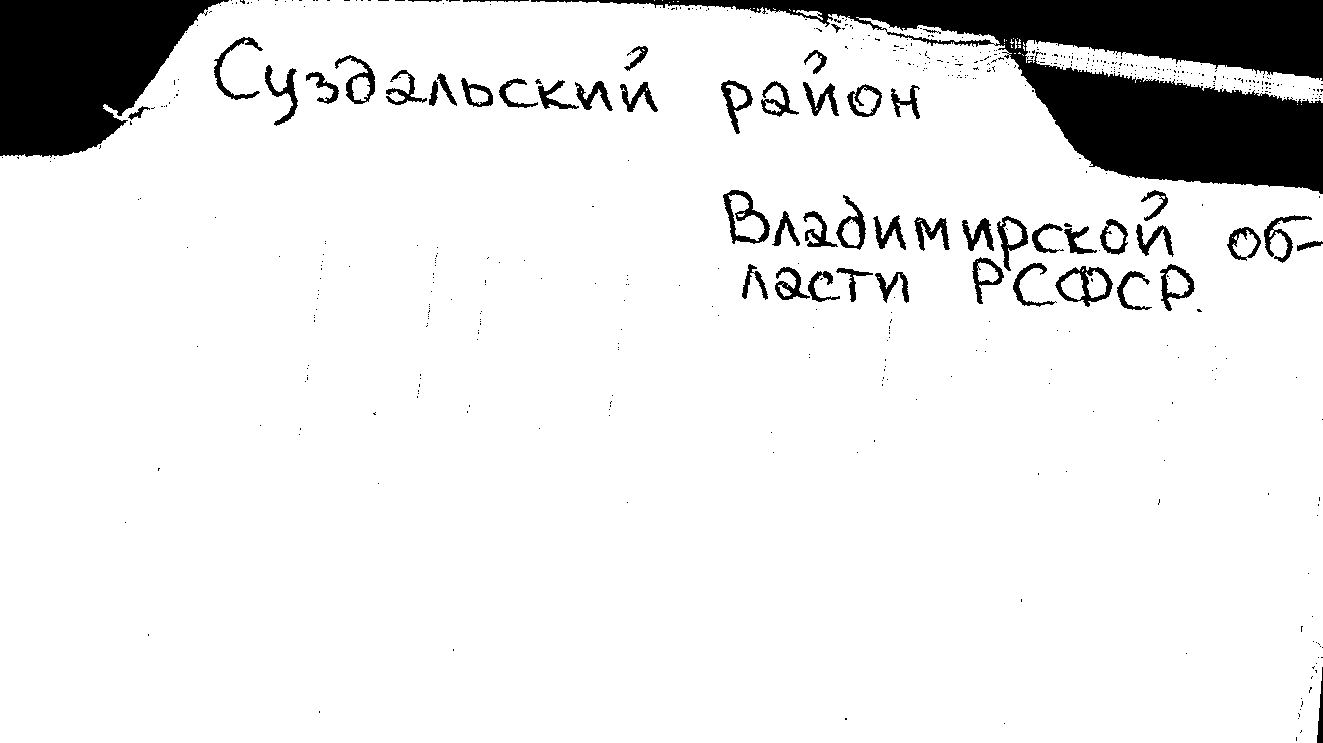 Суздальский район
Владимирской об-
ласти РСФСР.